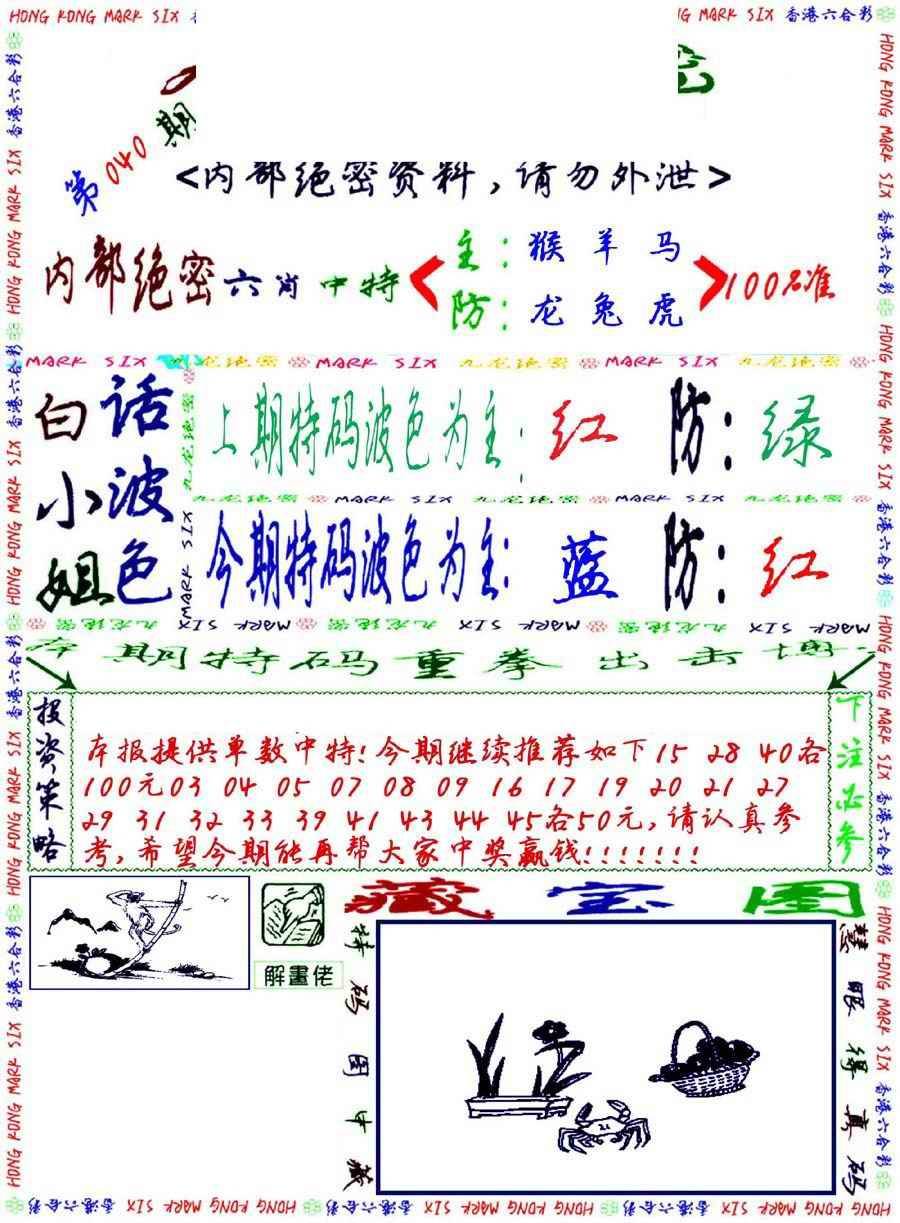 HONG KONG MARK SIX
HONG KONG MARK SIX 香港六合彩
第040期
<内部绝密资料,请勿外泄>
内部绝密六肖中特
主:猴 羊 马
防:龙 兔 虎
100%准
MARK SIX 九龙绝密 MARK SIX 九龙绝密 MARK SIX 九龙绝密
白话小波姐色
上期特码波色为主:红 防:绿
九龙绝密 MARK SIX 九龙绝密 MARK SIX 九龙绝密
今期特码波色为主:蓝 防:红
MARK SIX 九龙绝密 MARK SIX 九龙绝密 MARK SIX 九龙绝密
本期特码重拳出击
投资策略
本报提供单数中特!今期继续推荐如下15 28 40各
100元03 04 05 07 08 09 16 17 19 20 21 27
29 31 32 33 39 41 43 44 45各50元,请认真参
考,希望今期能再帮大家中奖赢钱!!!!!!!
下注必参
藏宝图
解畫佬
特码图中藏
慧眼得真码
21
香港六合彩 HONG KONG MARK SIX 香港六合彩 HONG KONG MARK SIX